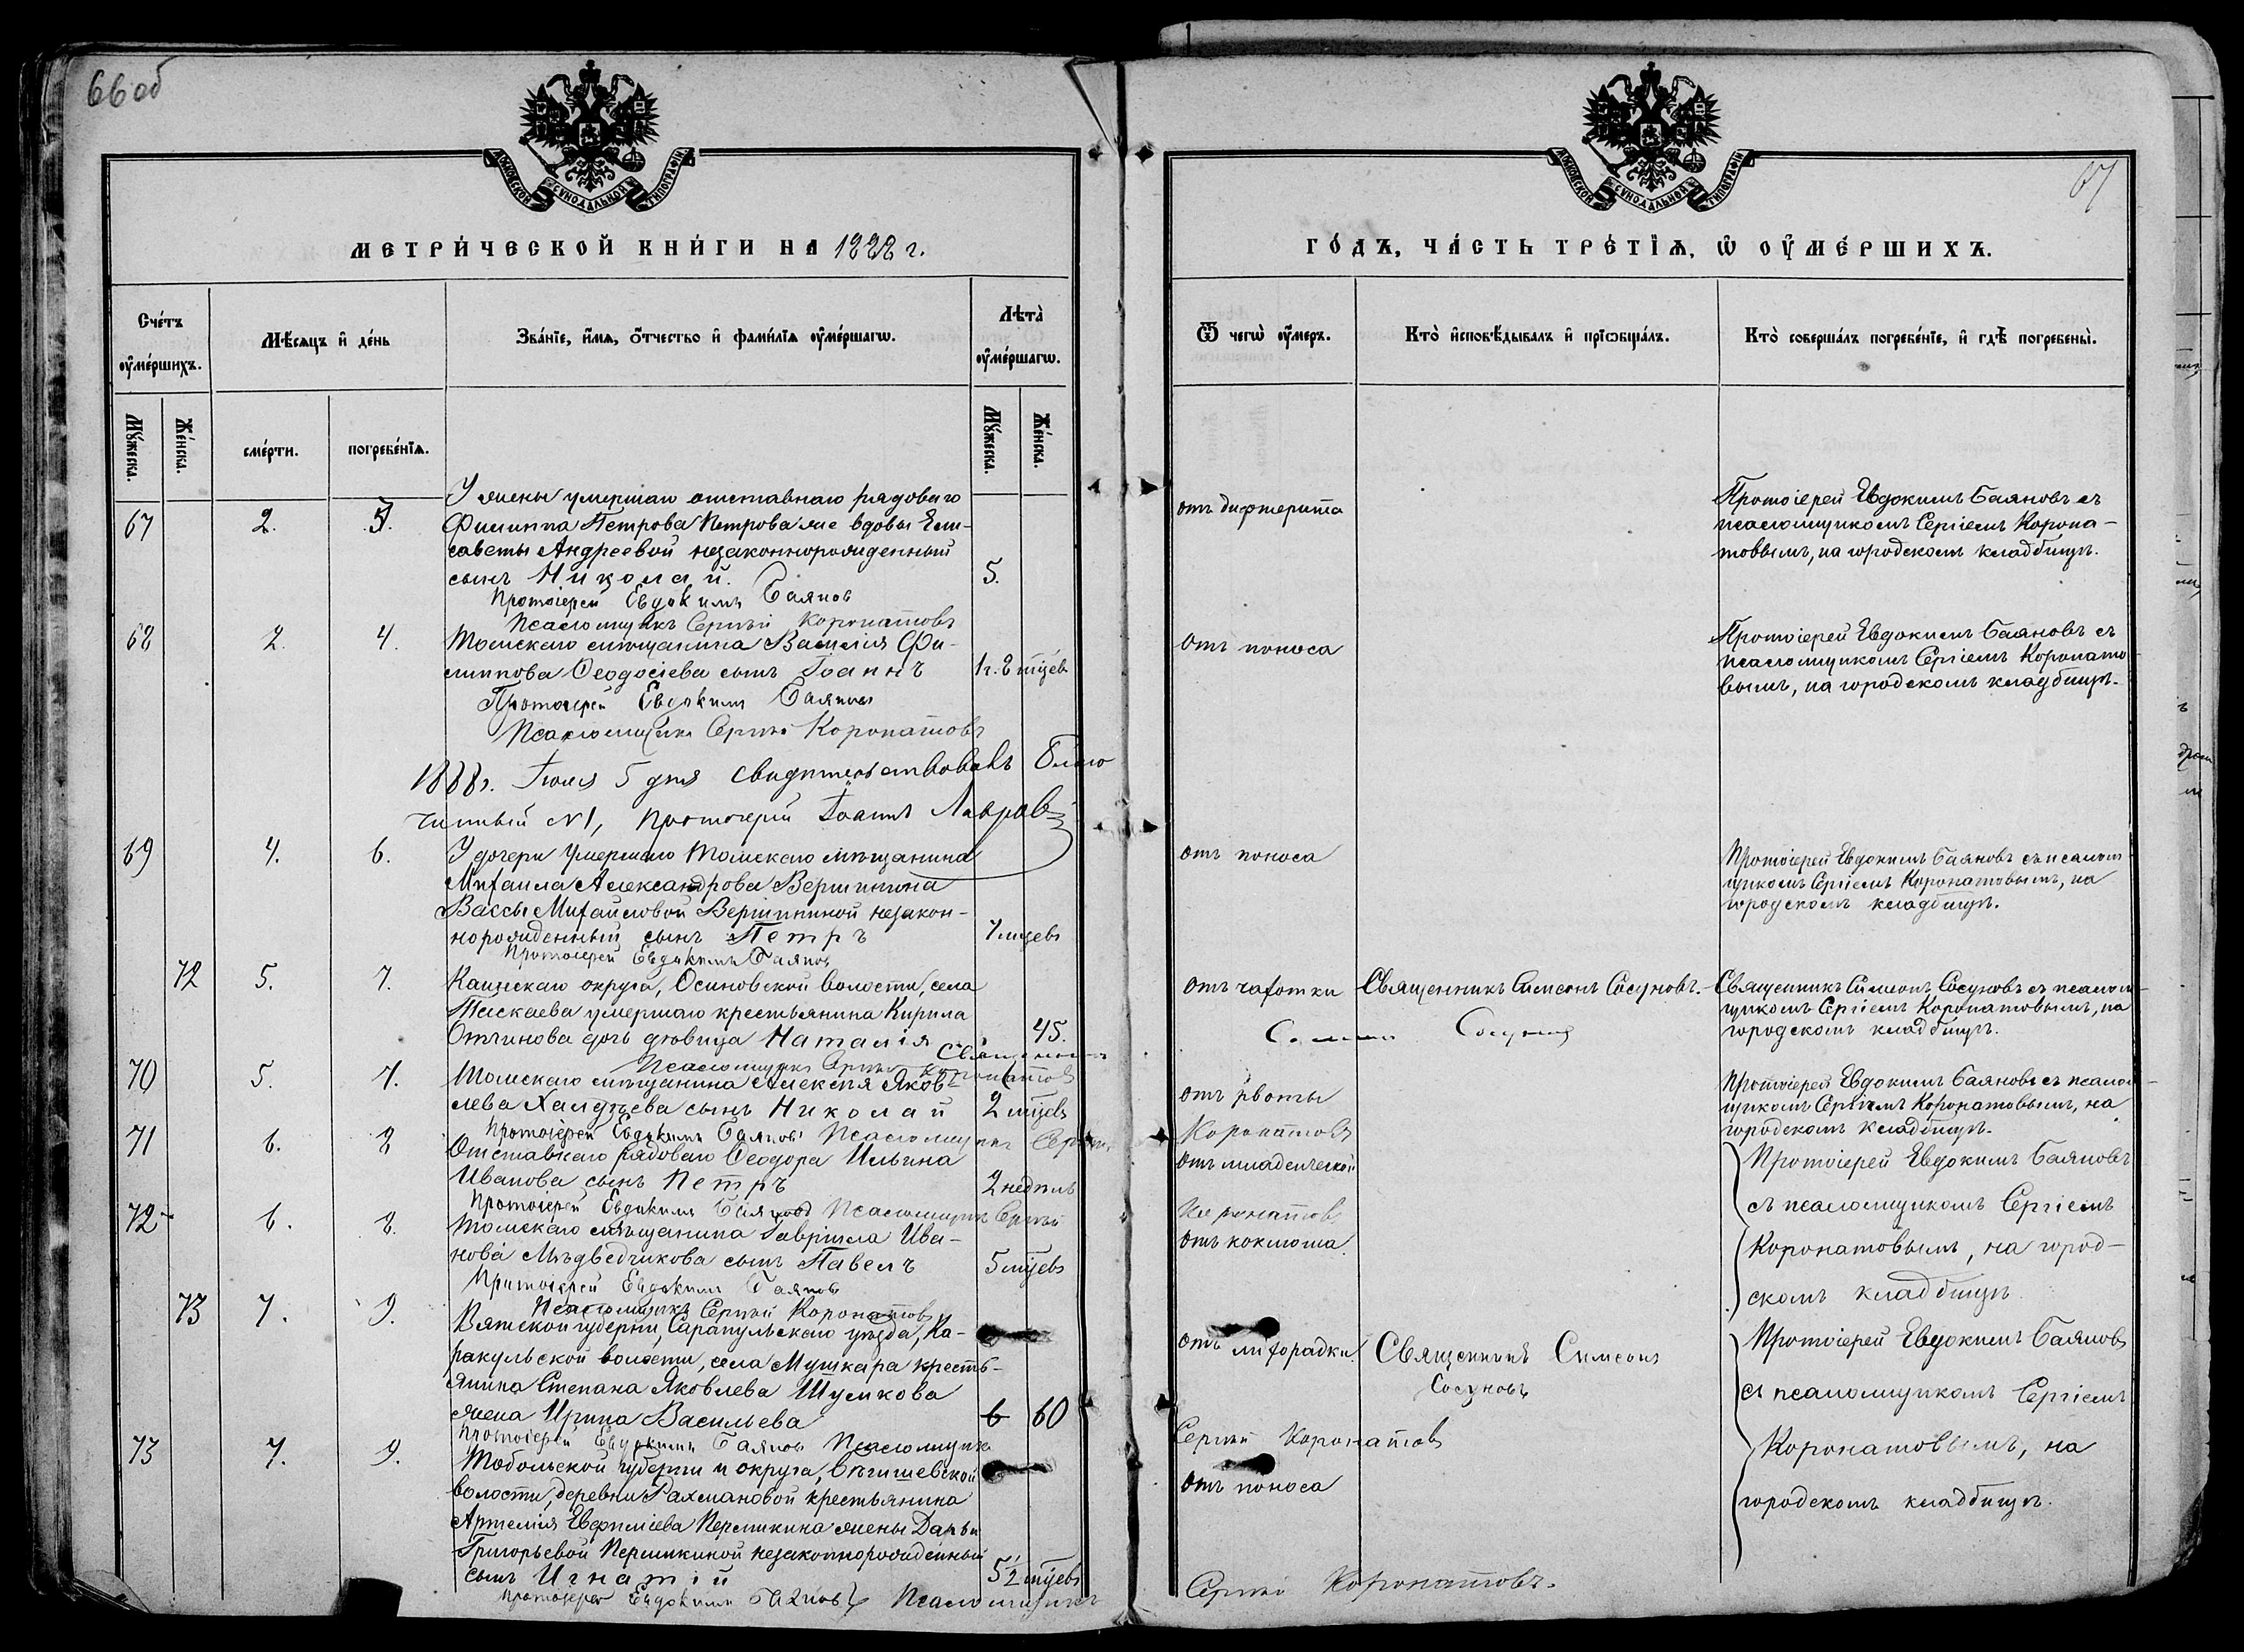 66 об
МОСКОВСКОЙ СѴНОДАЛЬНОЙ ТИПОГРАФІИ
МЕТРИ́ЧЕСКОЙ КНИ́ГИ НА 1888 г.
Счéтъ ᲂу҆мéршихъ.
Мѣ́сяцъ и҆ дéнь
Звáнїе, и҆́мя, ѻ҆́тчество и҆ фами́лїя ᲂу҆мéршагѡ.
Лѣтà ᲂу҆мéршагѡ.
Мꙋ́жеска.
Жéнска.
смéрти.
погребéнїѧ.
Мꙋ́жеска.
Жéнска.
У жены умершаго отставнаго рядоваго
67 2. Филиппа Петрова Петрова же вдовы Ели-
саветы Андреевой незаконнорожденный
сынъ Николай. 5.
Протоіерей Евдокимъ Баяновъ
Псаломщикъ Сергий Коронатовъ
68 2. 4. Томскаго мѣщанина Василія Фи-
липпова Ѳеодосіева сынъ Іоаннъ 1 г. 8 мцевъ
Протоіерей Евдокимъ Баяновъ
Псаломщикъ Сергій Коронатовъ
1888 г. Іюля 5 дня свидѣтельствовалъ Благо
чинный № 1, Протоіерей Іоаннъ Лавровъ
69 4. 6. У дочери умершаго Томскаго мѣщанина
Михаила Александрова Вершинина
Вассы Михайловой Вершининой незакон-
норожденный сынъ Петръ 7 мцевъ
Протоіерей Евдокимъ Баяновъ
72 5. 7. Каинскаго округа, Осиновской волости, села
Тискаева умершаго крестьянина Кирила
Отчинова дочь дѣвица Наталія 45.
Священникъ
Псаломщикъ Сергій Коронатовъ
70 5. 7. Томскаго мѣщанина Алексѣя Яков-
лева Халдѣева сынъ Николай 2 мцевъ
Протоіерей Евдокимъ Баяновъ Псаломщикъ Сергій
71 6. 8 Отставнаго рядоваго Ѳеодора Ильина
Иванова сынъ Петръ 2 недѣль
Протоіерей Евдокимъ Баяновъ Псаломщикъ Сергій
72 6. 8. Томскаго мѣщанина Гавріила Ива-
нова Мѣдведчикова сынъ Павелъ 5 мцевъ
Протоіерей Евдокимъ Баяновъ
Псаломщикъ Сергій Коронатовъ
73 7. 9. Вятской губерніи, Сарапульскаго уѣзда, Ка-
ракульской волости, села Мушкара кресть-
янина Степана Яковлева Шумкова
жена Ирина Васильева 6 60
Протоіерей Евдокимъ Баяновъ Псаломщикъ
73 7. 9. Тобольской губерніи и округа, Бѣгишевской
волости, деревни Рахмановой крестьянина
Артемія Евфиміева Пермикина жены Дарьи
Григорьевой Пермикиной незаконнорожденный
сынъ Игнатій 5½ мцевъ
Протоіерей Евдокимъ Баяновъ Псаломщикъ
МОСКОВСКОЙ СѴНОДАЛЬНОЙ ТИПОГРАФІИ
67
ГО́ДЪ, ЧА́СТЬ ТРЕ́ТЇѦ, Ѡ҆ ОУ҆МЕ́РШИХЪ.
Ѿ чегѡ̀ ᲂу҆́меръ.
Ктò и҆сповѣ́дывалъ и҆ прїѡбщáлъ.
Ктò совершáлъ погребéнїе, и҆ гдѣ̀ погребены̀.
отъ дифтерита
Протоіерей Евдокимъ Баяновъ съ
псаломщикомъ Сергіемъ Корона-
товымъ, на городскомъ кладбищѣ.
отъ поноса
Протоіерей Евдокимъ Баяновъ съ
псаломщикомъ Сергіемъ Коронато-
вымъ, на городскомъ кладбищѣ.
отъ поноса
Протоіерей Евдокимъ Баяновъ съ псалом-
щикомъ Сергіемъ Коронатовымъ, на
городскомъ кладбищѣ.
отъ чахотки Священникъ Симеонъ Сосуновъ. Священникъ Симеонъ Сосуновъ съ псалом-
щикомъ Сергіемъ Коронатовымъ, на
Симеонъ Сосуновъ городскомъ кладбищѣ.
отъ рвоты
Протоіерей Евдокимъ Баяновъ съ псалом-
щикомъ Сергіемъ Коронатовымъ, на
городскомъ кладбищѣ.
Коронатовъ
отъ младенческой
Протоіерей Евдокимъ Баяновъ
съ псаломщикомъ Сергіемъ
Коронатовъ
отъ коклюша.
Коронатовымъ, на город-
скомъ кладбищѣ.
отъ лихорадки. Священникъ Симеонъ
Сосуновъ
Протоіерей Евдокимъ Баяновъ
съ псаломщикомъ Сергіемъ
Сергій Коронатовъ
Коронатовымъ, на
отъ поноса
городскомъ кладбищѣ.
Сергій Коронатовъ.